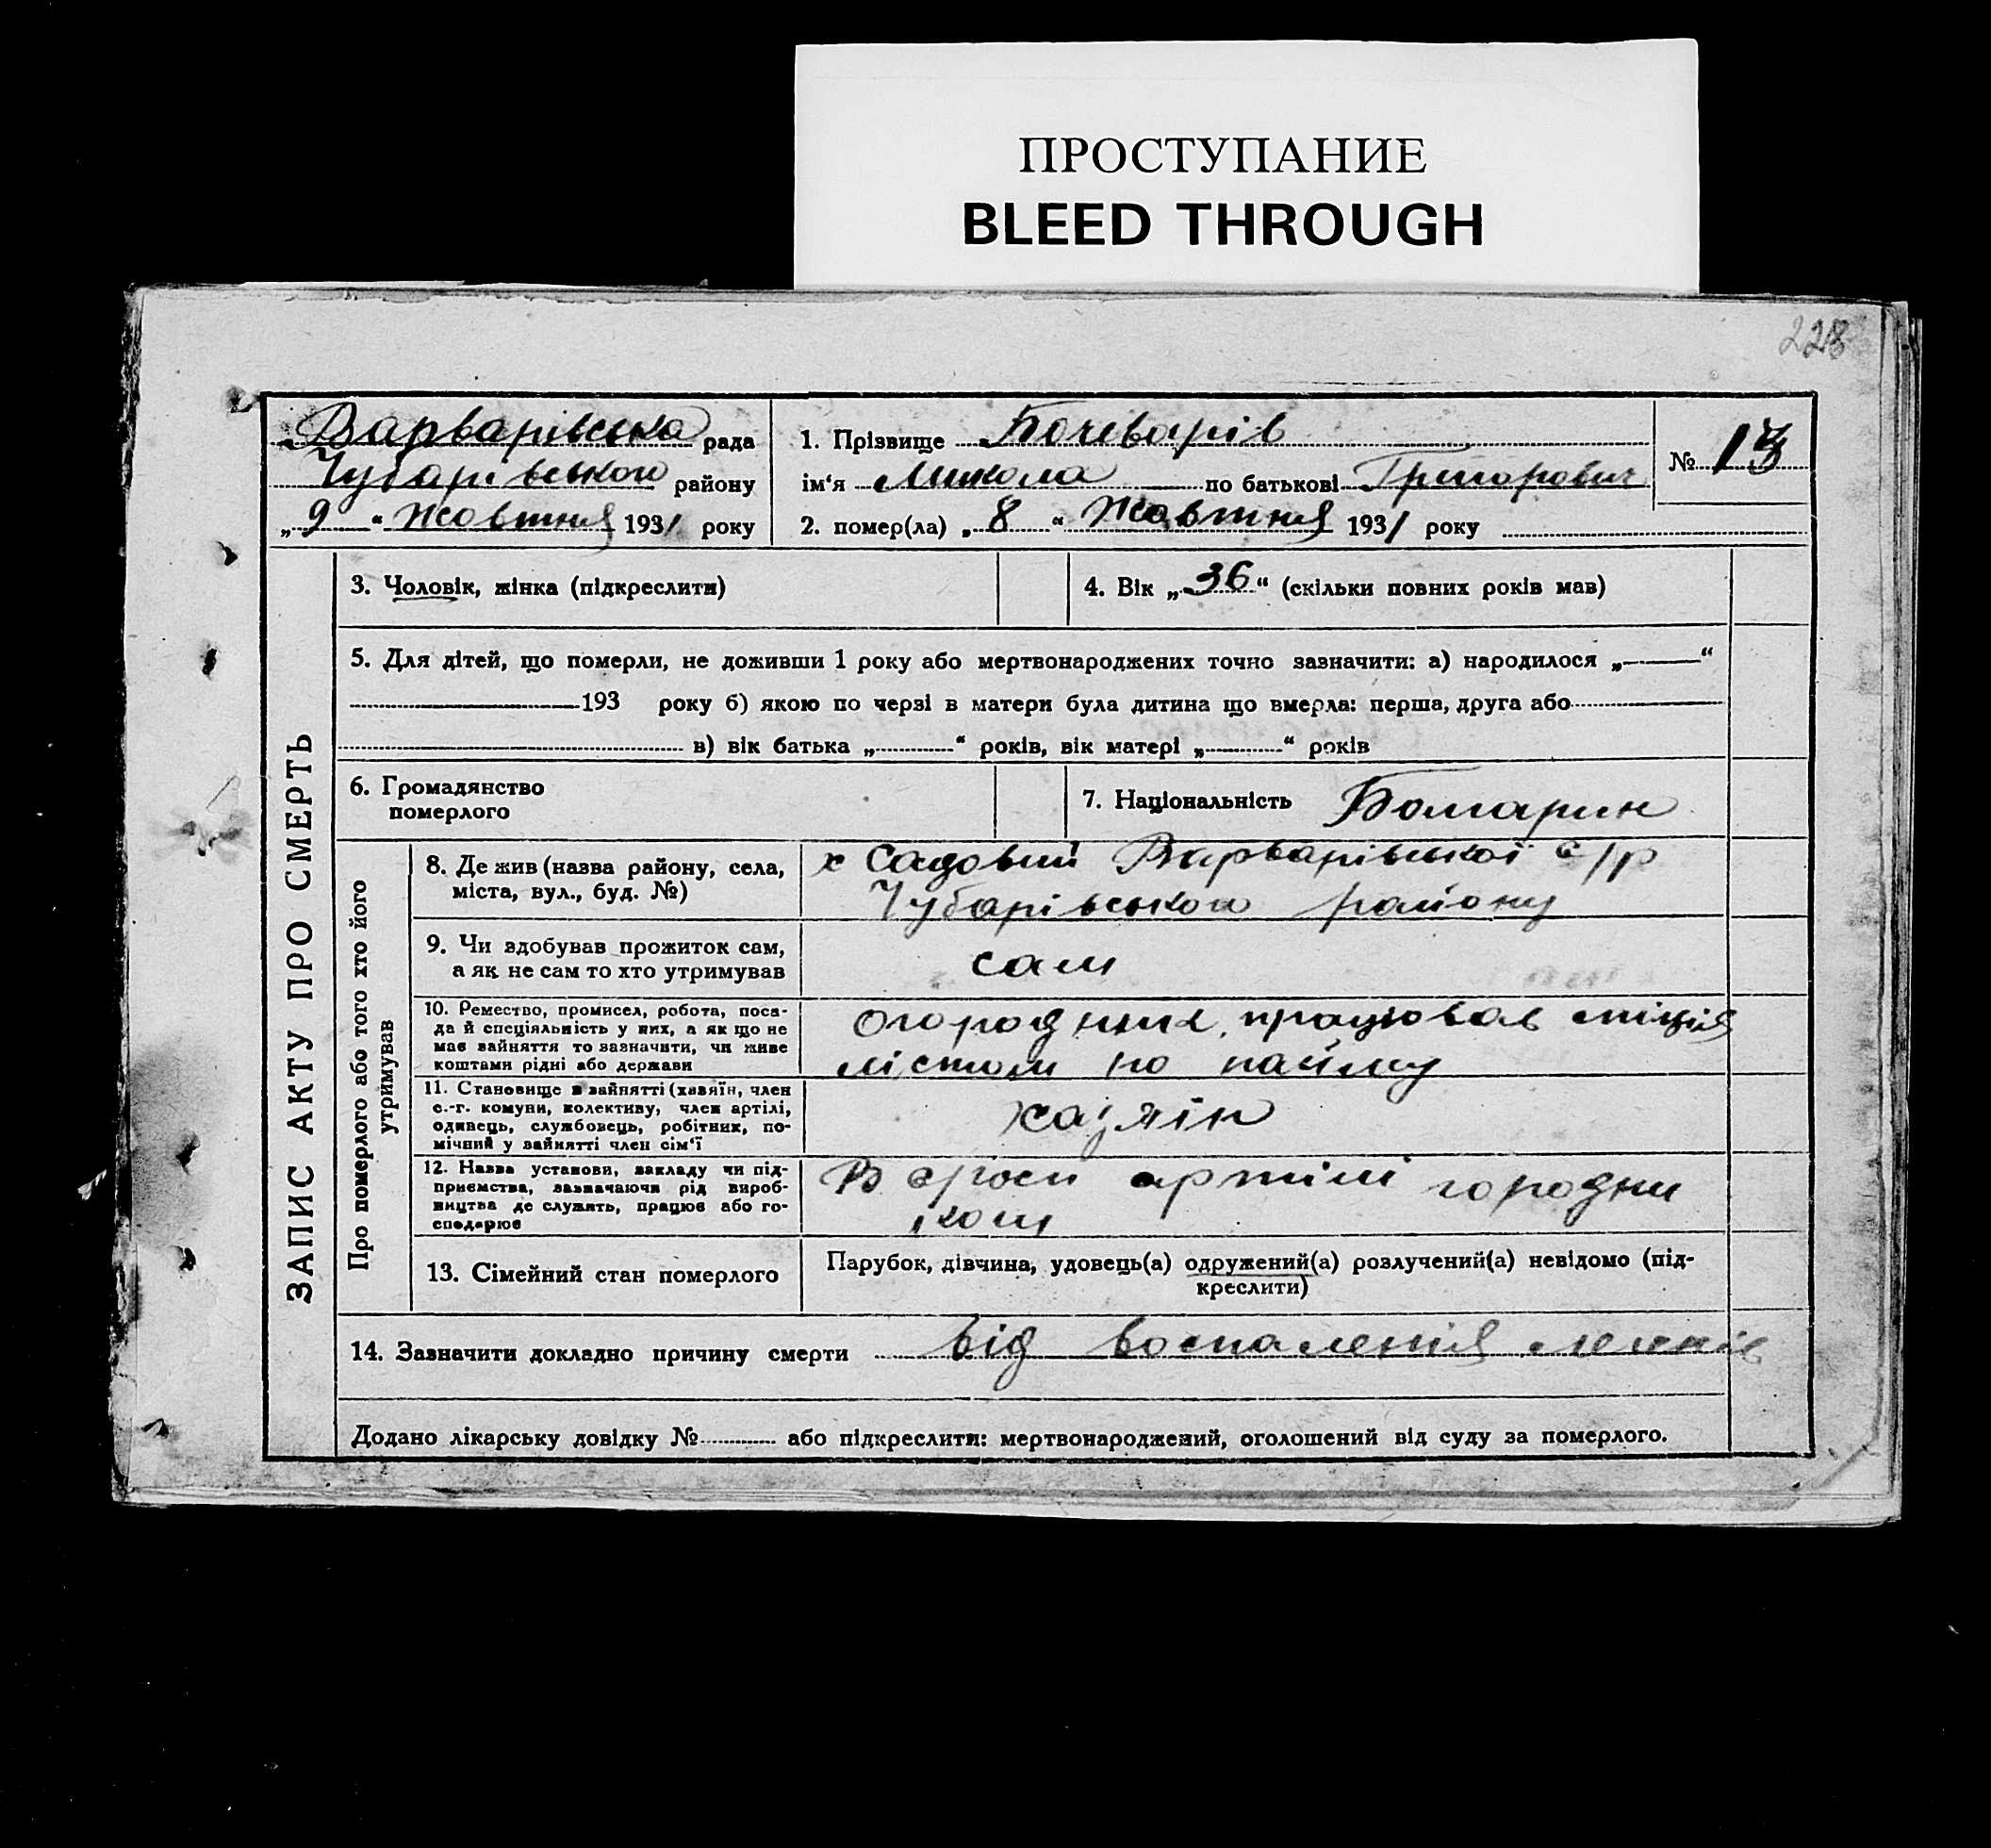 ПРОСТУПАНИЕ
BLEED THROUGH
228
Варварівська рада
Чубарівського району
„ 9 “ Жовтня 1931 року
1. Прізвище Бочеварів
ім‘я Микола по батькові Григорович
2. помер(ла) „ 8 “ Жовтня 1931 року
№ 13
ЗАПИС АКТУ ПРО СМЕРТЬ
3. Чоловік, жінка (підкреслити)
4. Вік „ 36 “ (скільки повних років мав)
5. Для дітей, що померли, не доживши 1 року або мертвонароджених точно зазначити: а) народилося „ “
193 року б) якою по черзі в матери була дитина що вмерла: перша, друга або
в) вік батька „ “ років, вік матері „ “ років
6. Громадянство
померлого
7. Національність Болгарин
Про померлого або того хто його
утримував
8. Де жив (назва району, села,
міста, вул., буд. №)
х Садовий Варварівської с/р
Чубарівського району
9. Чи здобував прожиток сам,
а як не сам то хто утримував
сам
10. Ремество, промисел, робота, поса-
да й спеціяльність у них, а як що не
має зайняття то зазначити, чи живе
коштами рідні або держави
Огородник, працював спіція
лістом по найму
11. Становище в зайнятті (хазяїн, член
с.-г. комуни, колективу, член артілі,
одинець, службовець, робітник, по-
мічний у зайнятті член сім‘ї
хазяїн
12. Назва установи, закладу чи під-
приємства, зазначаючи рід вироб-
ництва де служить, працює або го-
сподарює
В артілі городни
ком
13. Сімейний стан померлого
Парубок, дівчина, удовець(а) одружений(а) розлучений(а) невідомо (під-
креслити)
14. Зазначити докладно причину смерти від воспаления легких
Додано лікарську довідку № або підкреслити: мертвонароджений, оголошений від суду за померлого.